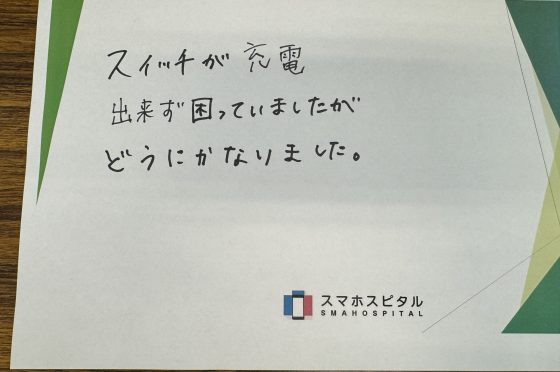 スイッチが充電
出来ず困っていましたが
どうにかなりました。
スマホスピタル
SMAHOSPITAL